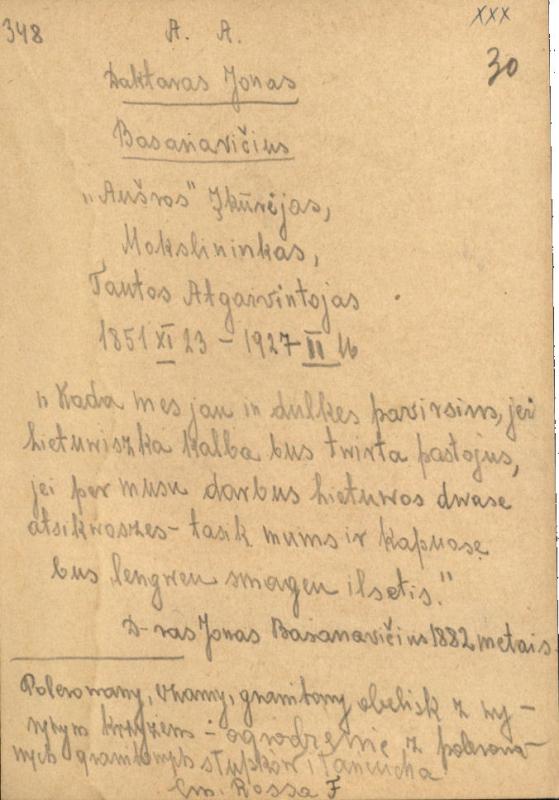 348
A. A.
XXX
30
Daktaras Jonas
Basanavičius
„Aušros" Įkūrėjas,
Mokslininkas,
Tautos Atgaivintojas
1851 XI 23 – 1927 II 16
„Kada mes jau in dulkes pavirsim, jei
lietuwiszka kalba bus twirta pastojus,
jei per musu darbus Lietuwos dwase
atsikwoszes – tasik mums ir kapuose
bus lengweu smageu ilsetis."
D-ras Jonas Basanavičius 1882 metais
Polerowany, czarny, granitowy obelisk z wy-
rytym krzyżem – ogrodzenie z polerowa-
nych granitowych słupków i łańcucha
Cm. Rossa F